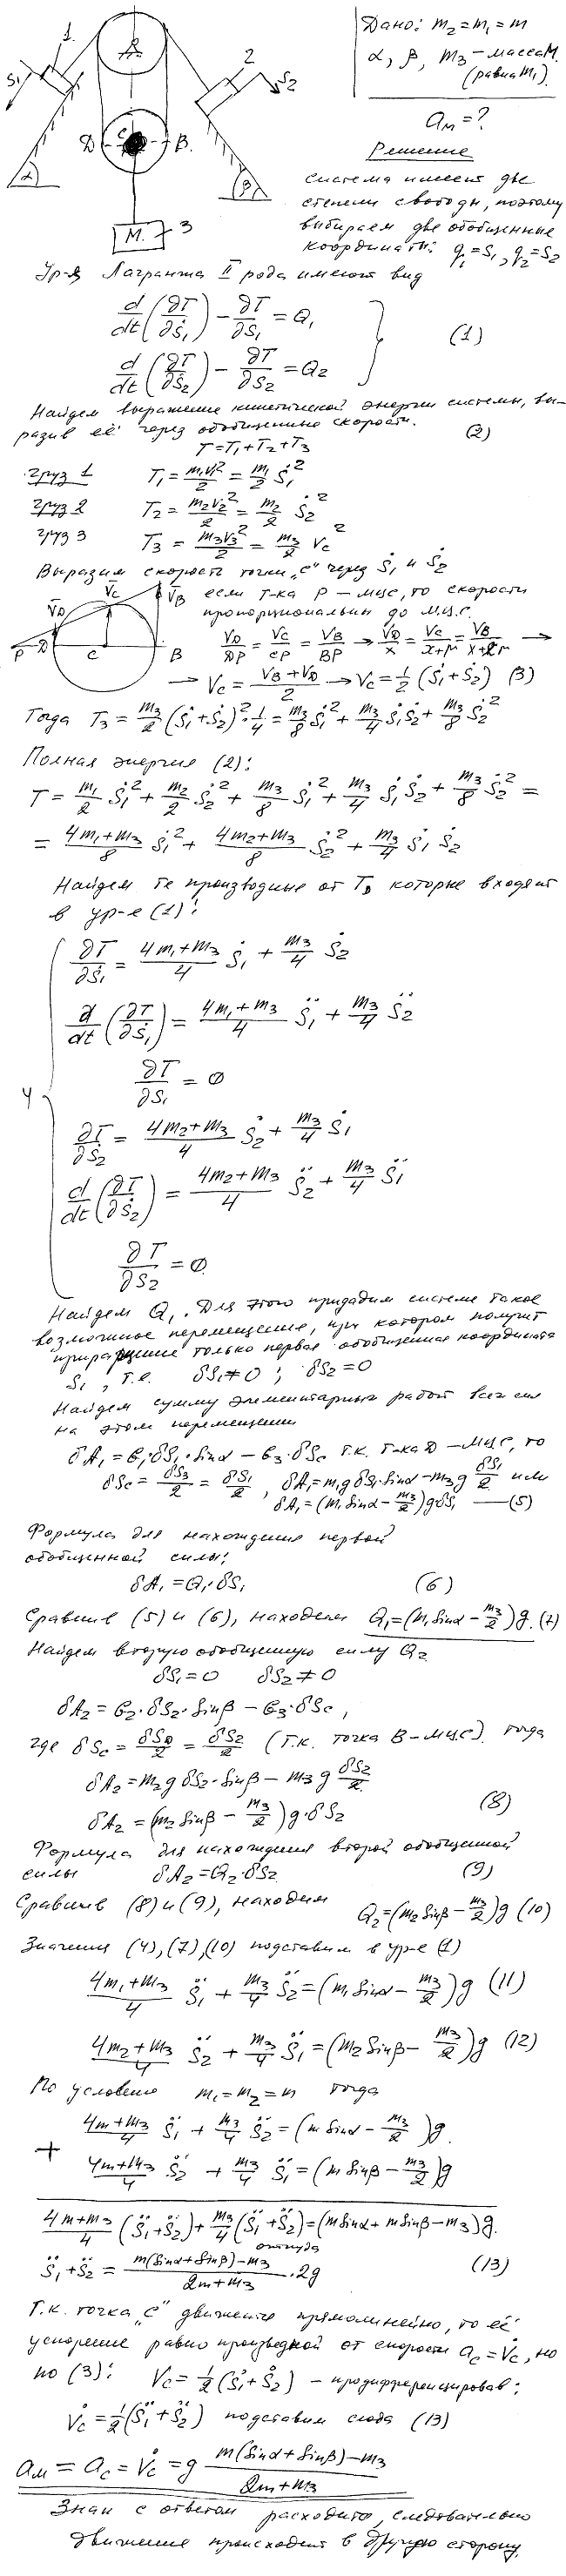 Дано: m₂=m₁=m
α, β, m₃ – масса M.
(равна m₁).
aₘ=?
Решение
1. 2 S₁ S₂ D C B. α β M. 3
система имеет две
степени свободы, поэтому
выбираем две обобщенные
координаты: q₁=S₁, q₂=S₂
Ур-я Лагранжа II рода имеют вид
d/dt(∂T/∂Ṡ₁) − ∂T/∂S₁ = Q₁
(1)
d/dt(∂T/∂Ṡ₂) − ∂T/∂S₂ = Q₂
Найдем выражение кинетической энергии системы, вы-
разив её через обобщенные скорости.
T=T₁+T₂+T₃ (2)
груз 1 T₁ = m₁v₁²/2 = m₁/2 Ṡ₁²
груз 2 T₂ = m₂v₂²/2 = m₂/2 Ṡ₂²
груз 3 T₃ = m₃v₃²/2 = m₃/2 Vc²
Выразим скорость точки "С" через Ṡ₁ и Ṡ₂
V̄D V̄C V̄B P D C B
если т-ка P – мцс, то скорости
пропорциональны до м.ц.с.
VD/DP = VC/CP = VB/BP → VD/x = VC/x+r = VB/x+2r →
→ Vc = VB+VD/2 → Vc = ½(Ṡ₁+Ṡ₂) (3)
Тогда T₃ = m₃/2 (Ṡ₁+Ṡ₂)²·1/4 = m₃/8 Ṡ₁² + m₃/4 Ṡ₁Ṡ₂ + m₃/8 Ṡ₂²
Полная энергия (2):
T = m₁/2 Ṡ₁² + m₂/2 Ṡ₂² + m₃/8 Ṡ₁² + m₃/4 Ṡ₁Ṡ₂ + m₃/8 Ṡ₂² =
= 4m₁+m₃/8 Ṡ₁² + 4m₂+m₃/8 Ṡ₂² + m₃/4 Ṡ₁Ṡ₂
Найдем те производные от T, которые входят
в ур-е (1):
∂T/∂Ṡ₁ = 4m₁+m₃/4 Ṡ₁ + m₃/4 Ṡ₂
d/dt(∂T/∂Ṡ₁) = 4m₁+m₃/4 S̈₁ + m₃/4 S̈₂
∂T/∂S₁ = 0
4
∂T/∂Ṡ₂ = 4m₂+m₃/4 Ṡ₂ + m₃/4 Ṡ₁
d/dt(∂T/∂Ṡ₂) = 4m₂+m₃/4 S̈₂ + m₃/4 S̈₁
∂T/∂S₂ = 0.
Найдем Q₁. Для этого придадим системе такое
возможное перемещение, при котором получит
приращение только первая обобщенная координата
S₁, т.е. δS₁≠0; δS₂=0
Найдем сумму элементарных работ всех сил
на этом перемещении
δA₁=G₁·δS₁·sinα−G₃·δSc т.к. т-ка D – МЦС, то
δSc = δSB/2 = δS₁/2, δA₁=m₁gδS₁·sinα−m₃g δS₁/2 или
δA₁=(m₁sinα−m₃/2)gδS₁ —(5)
Формула для нахождения первой
обобщенной силы:
δA₁=Q₁·δS₁ (6)
Сравнив (5) и (6), находим Q₁=(m₁sinα−m₃/2)g. (7)
Найдем вторую обобщенную силу Q₂
δS₁=0 δS₂≠0
δA₂=G₂·δS₂·sinβ−G₃·δSc,
где δSc = δSD/2 = δS₂/2 (т.к. точка B–МЦС). тогда
δA₂=m₂gδS₂·sinβ−m₃g δS₂/2
δA₂=(m₂sinβ−m₃/2)g·δS₂ (8)
Формула для нахождения второй обобщенной
силы δA₂=Q₂·δS₂ (9)
Сравнив (8) и (9), находим Q₂=(m₂sinβ−m₃/2)g (10)
Значения (4), (7), (10) подставим в ур-е (1)
4m₁+m₃/4 S̈₁ + m₃/4 S̈₂ = (m₁sinα−m₃/2)g (11)
4m₂+m₃/4 S̈₂ + m₃/4 S̈₁ = (m₂sinβ−m₃/2)g (12)
По условию m₁=m₂=m тогда
4m+m₃/4 S̈₁ + m₃/4 S̈₂ = (m sinα−m₃/2)g.
+
4m+m₃/4 S̈₂ + m₃/4 S̈₁ = (m sinβ−m₃/2)g
4m+m₃/4 (S̈₁+S̈₂)+m₃/4(S̈₁+S̈₂)=(m sinα+m sinβ−m₃)g.
откуда
S̈₁+S̈₂ = m(sinα+sinβ)−m₃/2m+m₃ ·2g (13)
Т.к. точка "С" движется прямолинейно, то её
ускорение равно производной от скорости ac=V̇c, но
по (3): Vc=½(Ṡ₁+Ṡ₂) – продифференцировав:
V̇c=½(S̈₁+S̈₂) подставим сюда (13)
aₘ=ac=V̇c=g m(sinα+sinβ)−m₃/2m+m₃
Знак с ответом расходится, следовательно
движение происходит в другую сторону.